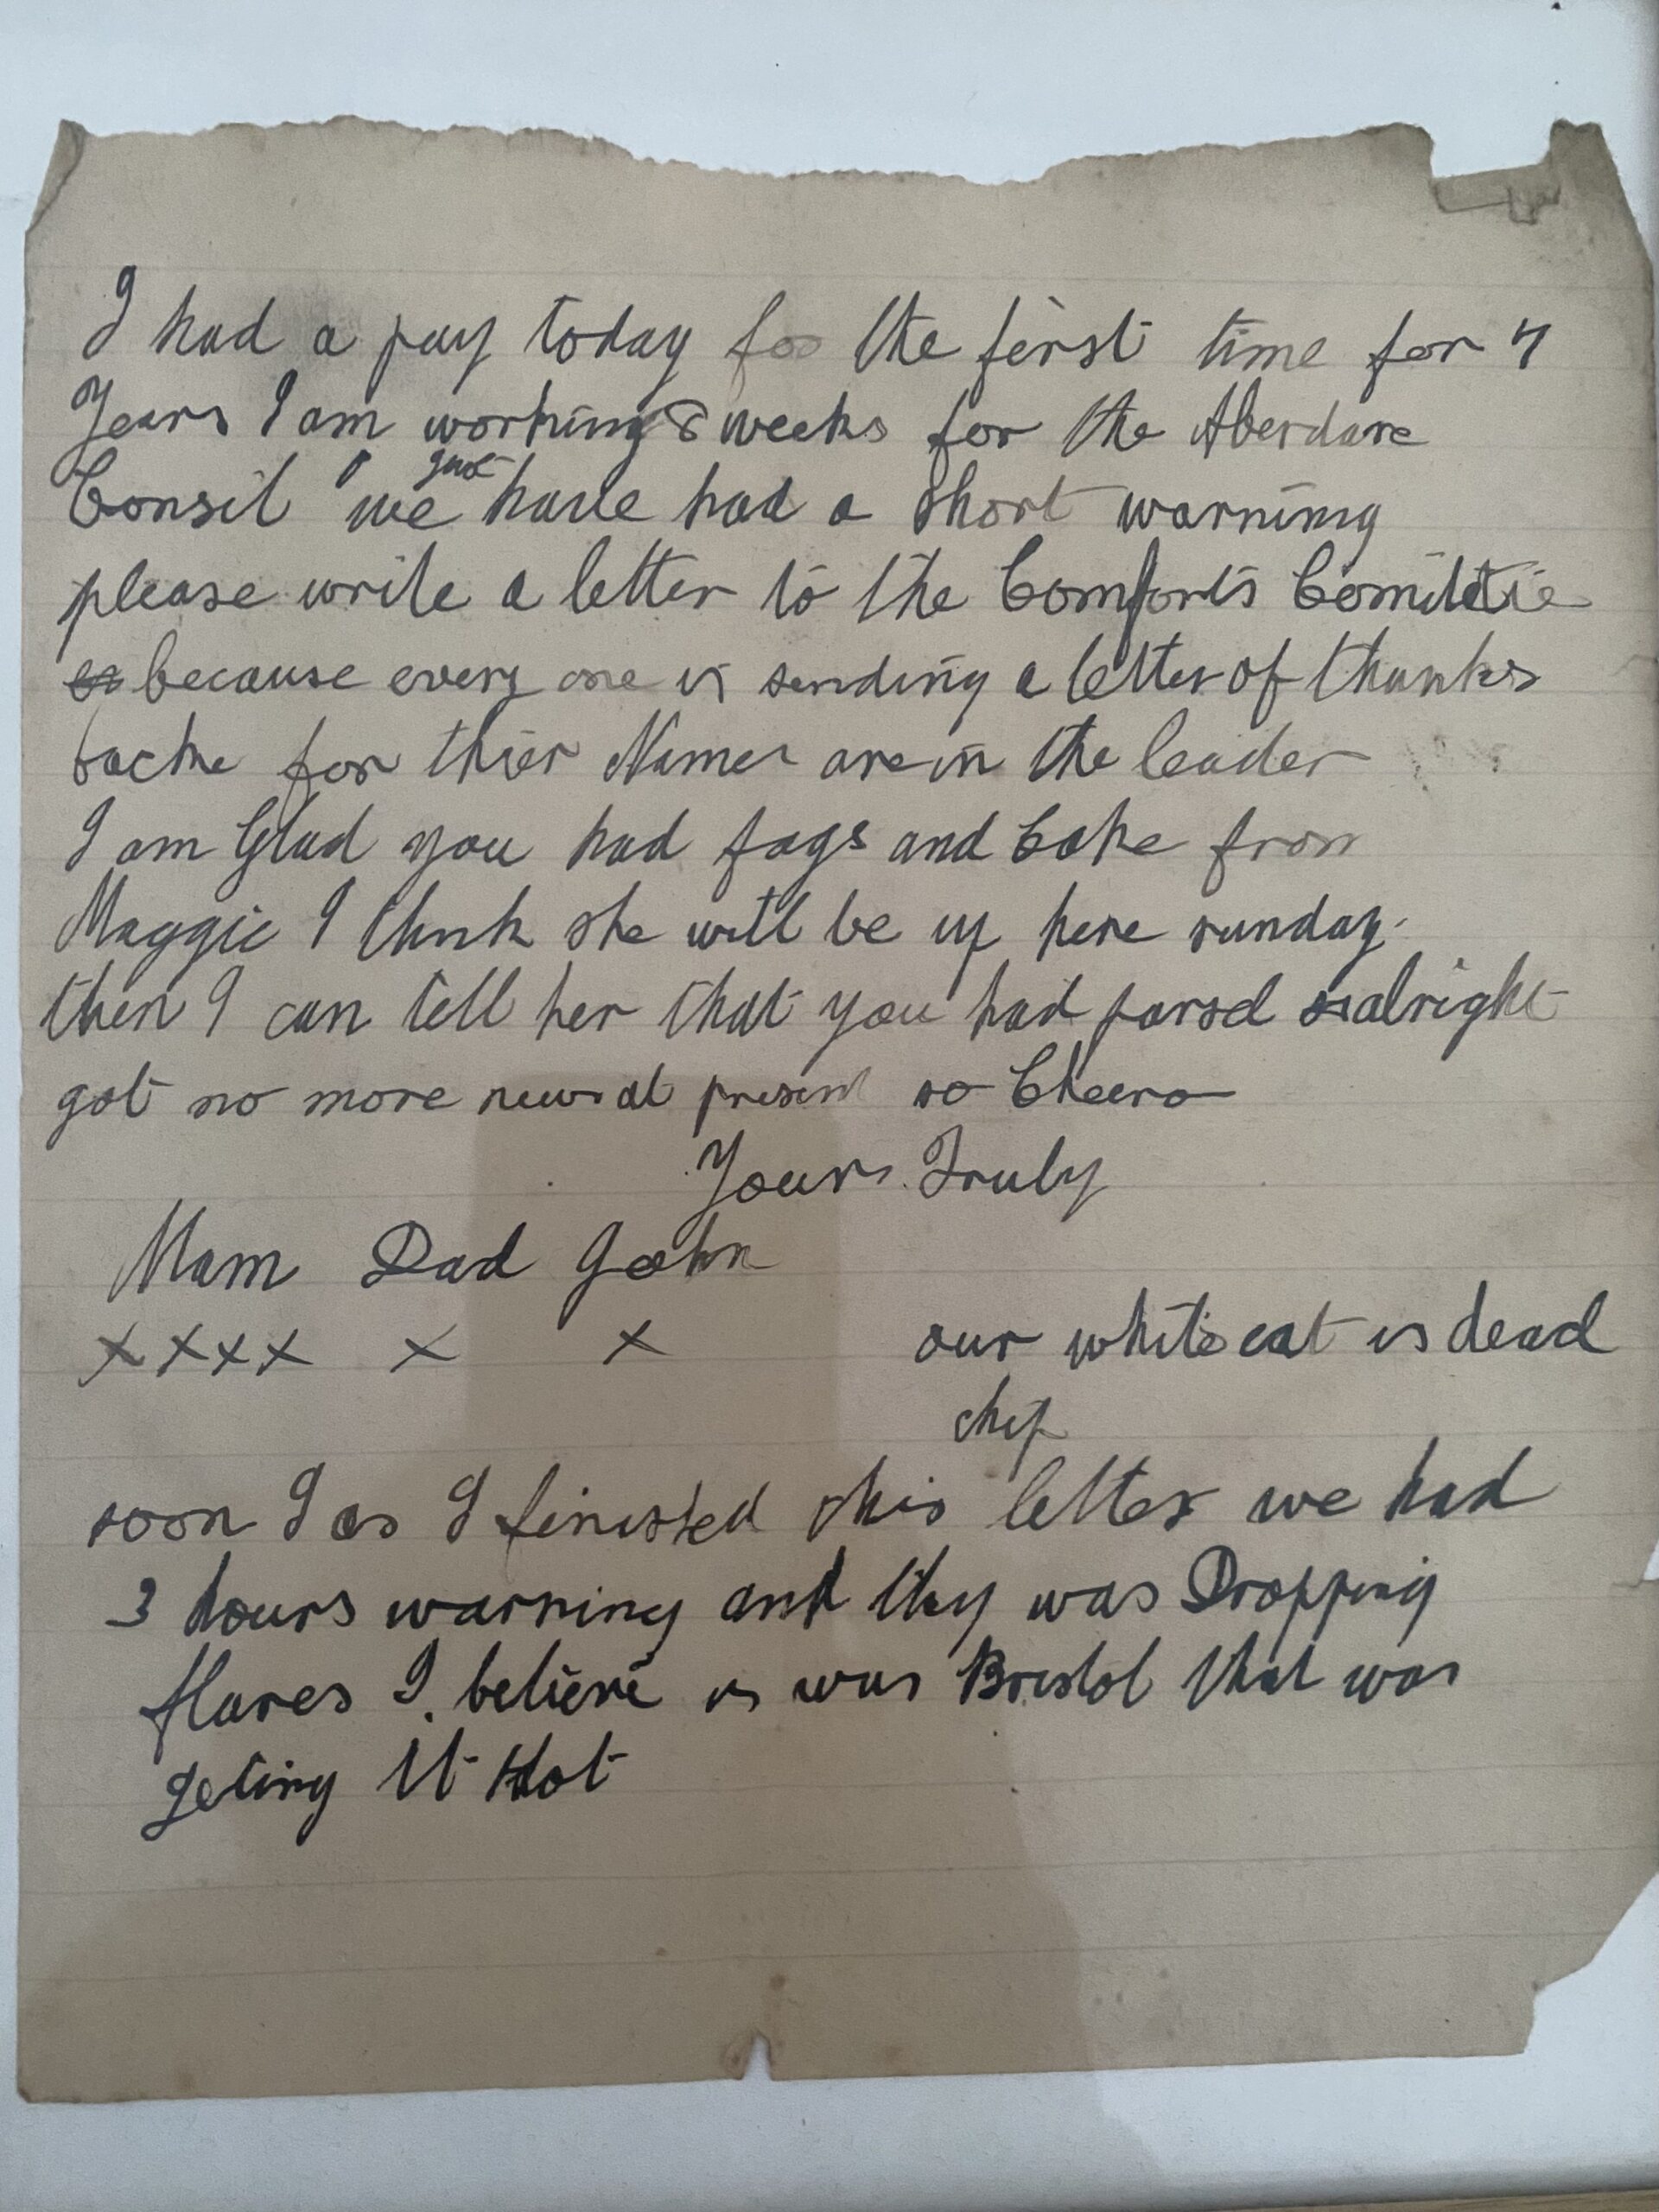 I had a pay today for the first time for 7
Years I am working 8 weeks for the Aberdare
Consil we just have had a short warning
please write a letter to the Comforts Comittie
because every one is sending a letter of thanks
backe for thier Names are in the leader
I am Glad you had fags and Cake from
Maggie I thnk she will be up here sunday.
then I can tell her that you had parsel alright
got no more news at present so Cheero
Yours Truly
Mam Dad John
x x x x x x
our white cat is dead
chip
soon I as I finished this letter we had
3 hours warning and they was Dropping
flares I believe is was Bristol that was
geting It Hot